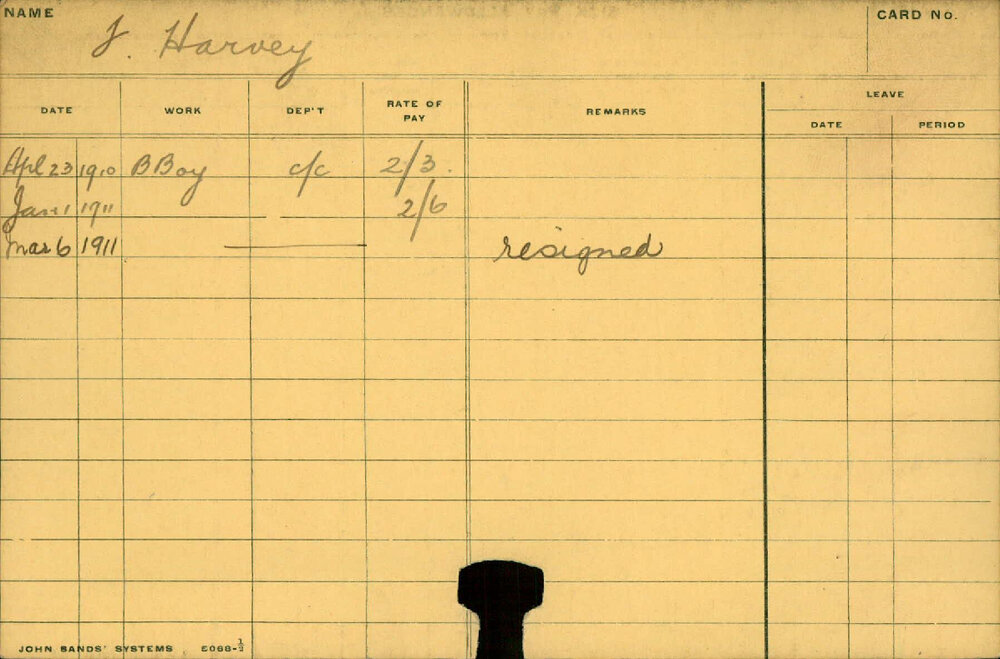 NAME J. Harvey CARD No.
DATE WORK DEP'T RATE OF PAY REMARKS LEAVE
DATE PERIOD
Apl 23 1910 B Boy c/c 2/3.
Jan 1 1911 2/6
Mar 6 1911 resigned
JOHN SANDS' SYSTEMS